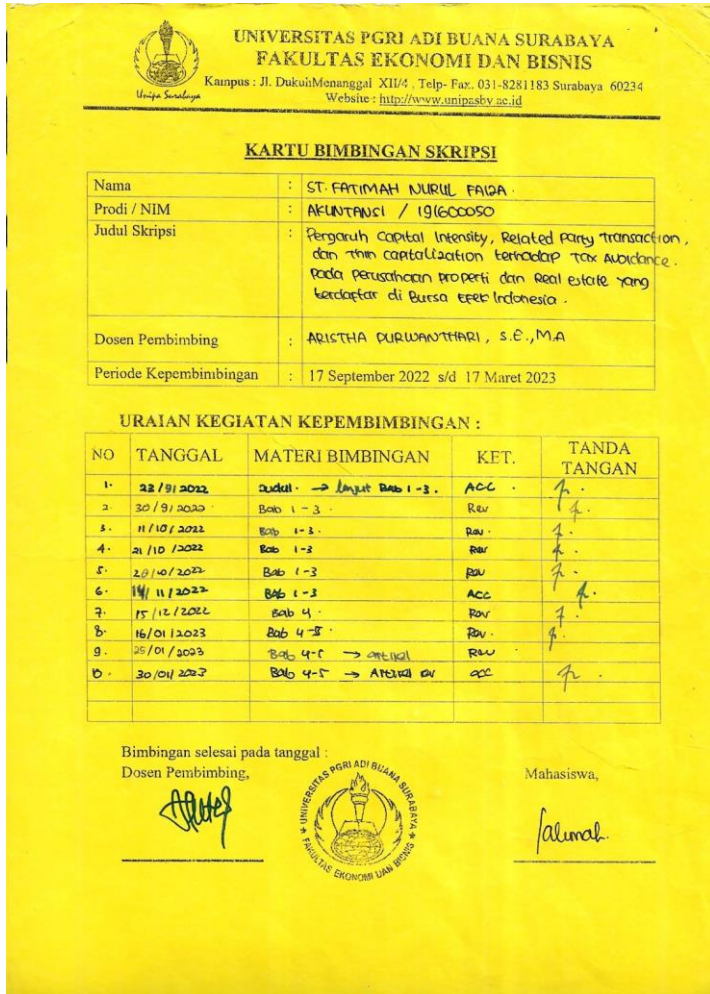 UNIVERSITAS PGRI ADI BUANA SURABAYA
FAKULTAS EKONOMI DAN BISNIS
Kampus : Jl. DukuhMenanggal XII/4 , Telp- Fax. 031-8281183 Surabaya 60234
Website : http://www.unipasby.ac.id
Unipa Surabaya
KARTU BIMBINGAN SKRIPSI
Nama : ST. FATIMAH NURUL FAIZA .
Prodi / NIM : AKUNTANSI / 191600050
Judul Skripsi : Pengaruh Capital Intensity, Related Party Transaction,
dan Thin Capitalization terhadap Tax Avoidance .
Pada Perusahaan Properti dan Real estate yang
terdaftar di Bursa Efek Indonesia .
Dosen Pembimbing : ARISTHA PURWANTHARI , S.E., M.A
Periode Kepembimbingan : 17 September 2022 s/d 17 Maret 2023
URAIAN KEGIATAN KEPEMBIMBINGAN :
NO TANGGAL MATERI BIMBINGAN KET. TANDA
TANGAN
1. 23/9/2022 Judul. → lanjut Bab 1-3 . ACC .
2. 30/9/2022 . Bab 1-3 . Rev
3. 11/10/2022 Bab 1-3 . Rev .
4. 21/10/2022 Bab 1-3 Rev
5. 28/10/2022 Bab 1-3 Rev
6. 14/11/2022 Bab 1-3 ACC
7. 15/12/2022 Bab 4 . Rev
8. 16/01/2023 Bab 4-5 . Rev .
9. 25/01/2023 Bab 4-5 → artikel Rev
10 . 30/01/2023 Bab 4-5 → Artikel acc
Bimbingan selesai pada tanggal :
Dosen Pembimbing, Mahasiswa,
UNIVERSITAS PGRI ADI BUANA SURABAYA
FAKULTAS EKONOMI DAN BISNIS